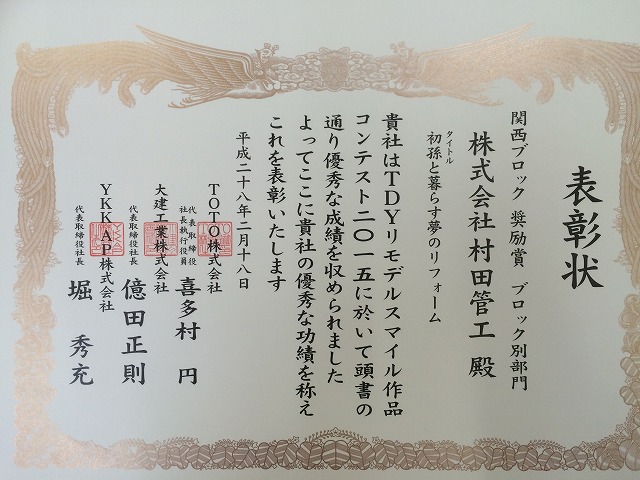 表彰状
関西ブロック 奨励賞 ブロック別部門
株式会社村田管工 殿
タイトル
初孫と暮らす夢のリフォーム
貴社はTDYリモデルスマイル作品
コンテスト二〇一五に於いて頭書の
通り優秀な成績を収められました
よってここに貴社の優秀な功績を称え
これを表彰いたします
平成二十八年二月十八日
TOTO株式会社
代表取締役
社長執行役員
喜多村 円
大建工業株式会社
代表取締役社長
億田正則
YKK AP株式会社
代表取締役社長
堀 秀充